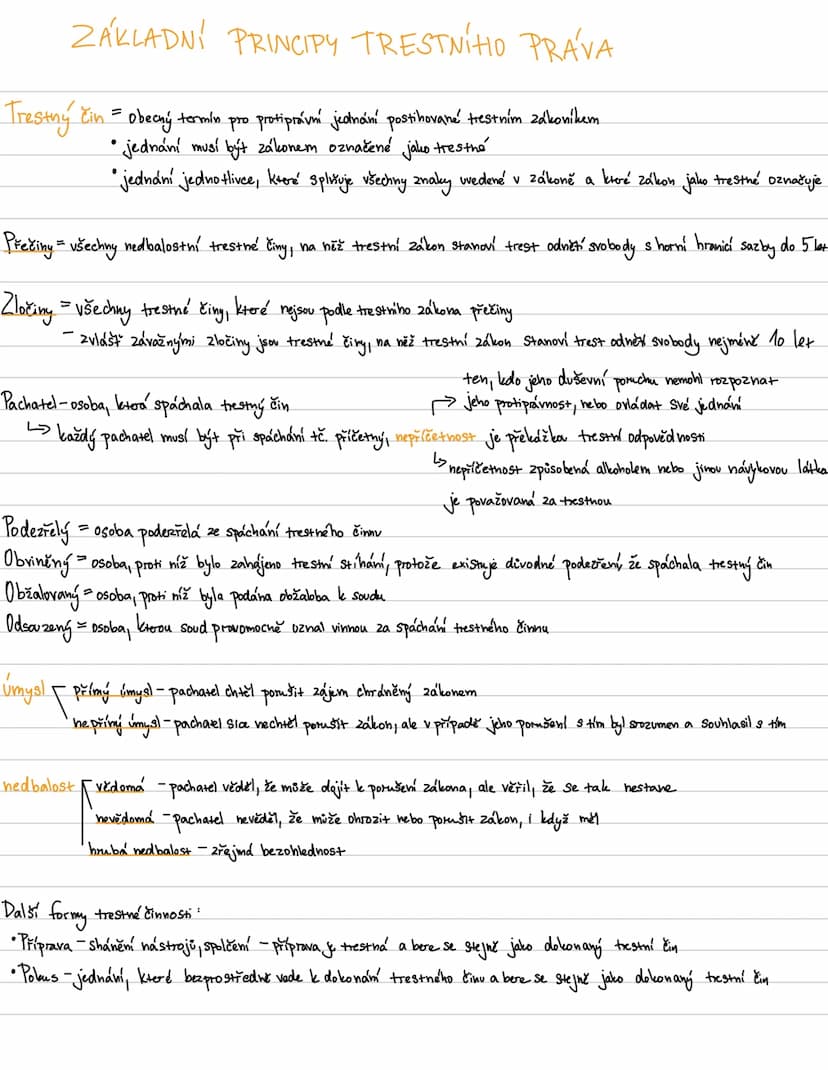 ZÁKLADNÍ PRINCIPY TRESTNÍHO PRÁVA
Trestný čin = obecný termín pro protiprávní jednání postihované trestním zákoníkem
• jednání musí být zákonem označené jako trestné
• jednání jednotlivce, které splňuje všechny znaky uvedené v zákoně a které zákon jako trestné označuje
Přečiny = všechny nedbalostní trestné činy, na něž trestní zákon stanoví trest odnětí svobody s horní hranicí sazby do 5 let
Zločiny = všechny trestné činy, které nejsou podle trestního zákona přečiny
- zvlášť závažnými zločiny jsou trestné činy, na něž trestní zákon stanoví trest odnětí svobody nejméně 10 let
ten, kdo jeho duševní poruchu nemohl rozpoznat
Pachatel - osoba, která spáchala trestný čin
→ jeho protiprávnost, nebo ovládat své jednání
↳ každý pachatel musí být při spáchání tč. příčetný, nepříčetnost je překážkou trestní odpovědnosti
↳ nepříčetnost způsobená alkoholem nebo jinou návykovou látkou
je považovaná za trestnou
Podezřelý = osoba podezřelá ze spáchání trestného činu
Obviněný = osoba, proti níž bylo zahájeno trestní stíhání, protože existuje důvodné podezření, že spáchala trestný čin
Obžalovaný = osoba, proti níž byla podána obžaloba k soudu
Odsouzený = osoba, kterou soud pravomocně uznal vinnou za spáchání trestného činnu
Úmysl přímý úmysl - pachatel chtěl porušit zájem chráněný zákonem
nepřímý úmysl - pachatel sice nechtěl porušit zákon, ale v případě jeho porušení s tím byl srozumen a souhlasil s tím
nedbalost vědomá - pachatel věděl, že může dojít k porušení zákona, ale věřil, že se tak nestane
nevědomá - pachatel nevěděl, že může ohrozit nebo porušit zákon, i když měl
hrubá nedbalost - zřejmá bezohlednost
Další formy trestné činnosti:
• Příprava - shánění nástrojů, spolčení - příprava je trestná a bere se stejně jako dokonaný trestní čin
• Pokus - jednání, které bezprostředně vede k dokonání trestného činu a bere se stejně jako dokonaný trestní čin